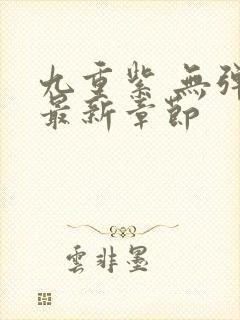 九重紫 無彈
最新章節
雲非墨